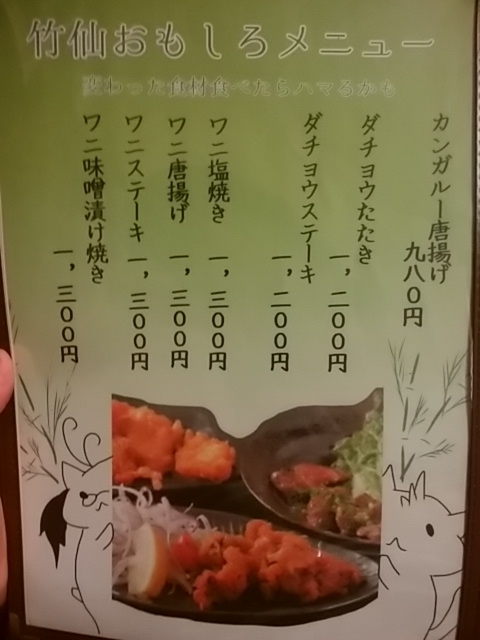 竹仙おもしろメニュー
変わった食材食べたらハマるかも
カンガルー唐揚げ
九八０円
ダチョウたたき
一，二００円
ダチョウステーキ
一，二００円
ワニ塩焼き
一，三００円
ワニ唐揚げ
一，三００円
ワニステーキ
一，三００円
ワニ味噌漬け焼き
一，三００円